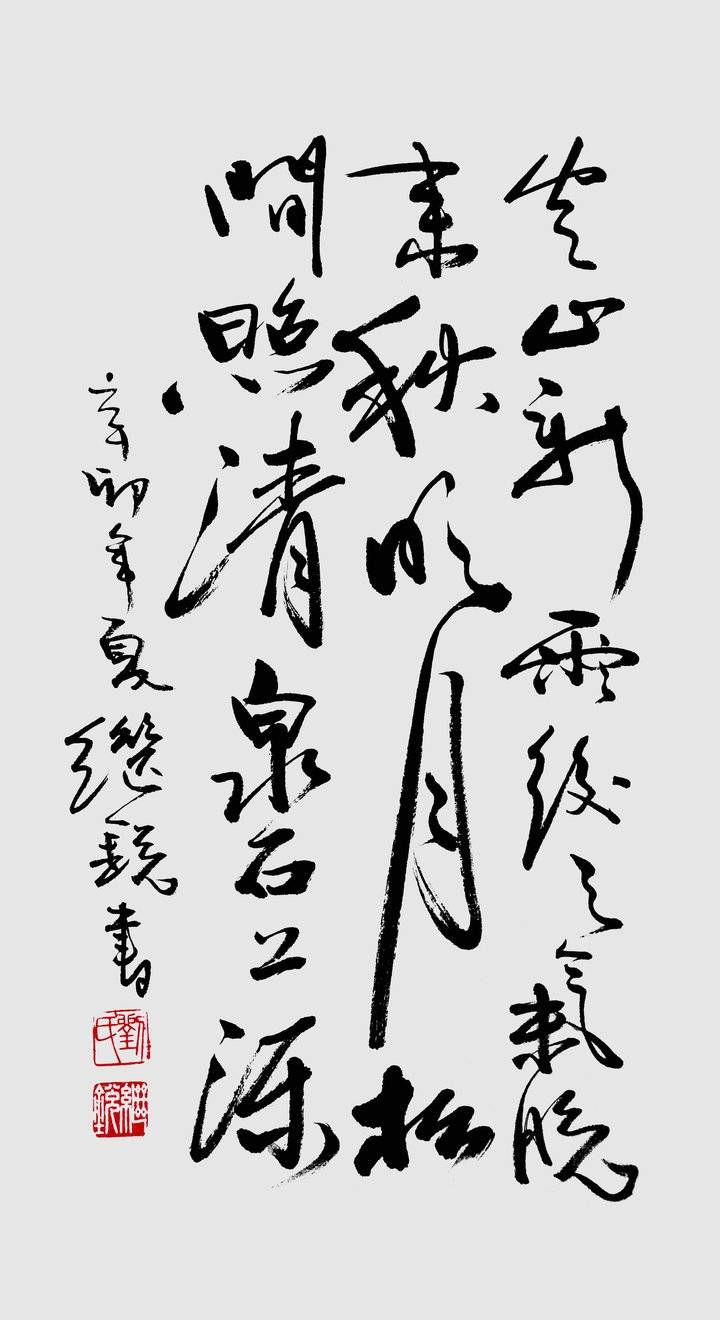 空山新雨後天氣晚
来秋明月松
間照清泉石上流
辛卯年夏繼銳書
劉氏
繼銳